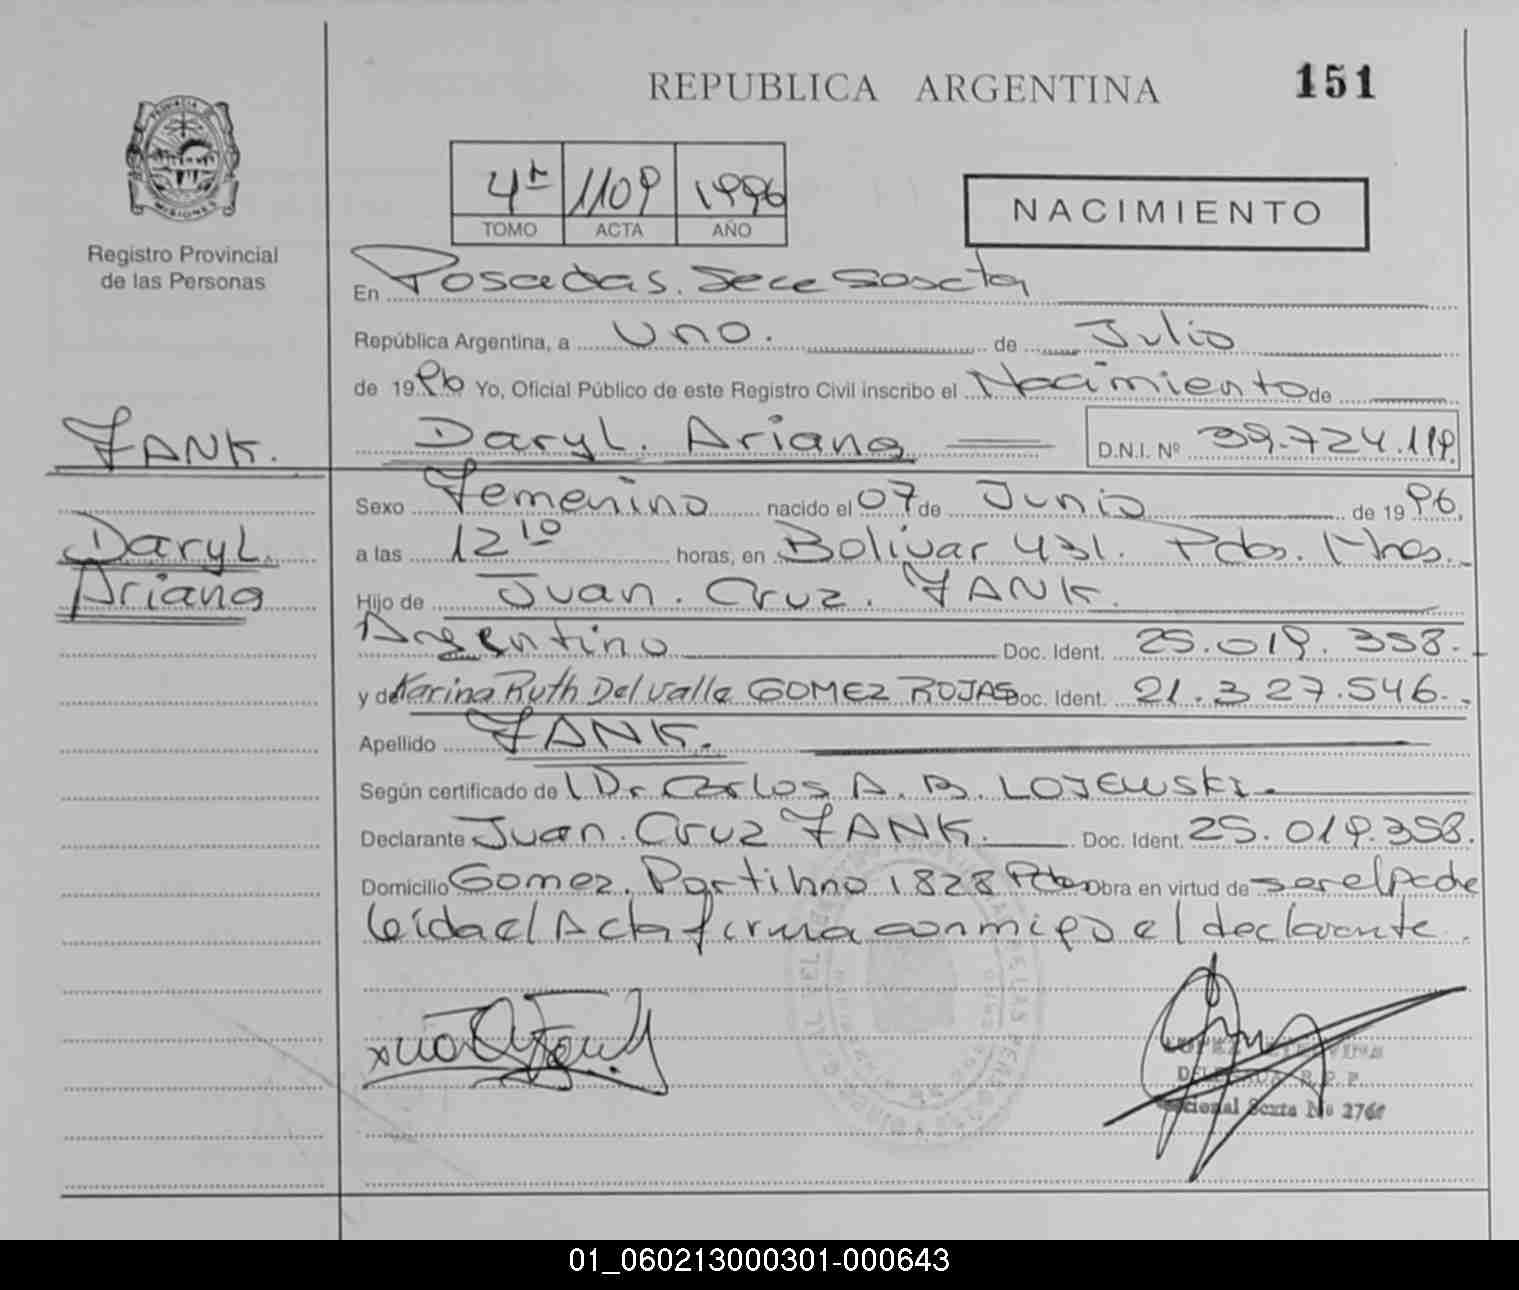 REPUBLICA ARGENTINA
151
PROVINCIA DE
MISIONES
Registro Provincial
de las Personas
4º 1109 1996
TOMO ACTA AÑO
NACIMIENTO
En Posadas. Secc Sexta
República Argentina, a uno. de Julio
de 1996 Yo, Oficial Público de este Registro Civil inscribo el Nacimiento de
FANK.
Daryl. Ariana D.N.I. Nº 39.724.119
Sexo Femenino nacido el 07 de Junio de 1996,
Daryl
Ariana
a las 12 10 horas, en Bolivar 431. Pdas. Mnes.
Hijo de Juan. Cruz. FANK.
Argentino Doc. Ident. 25.019.358.
y de Karina Ruth Del Valle GOMEZ ROJAS Doc. Ident. 21.327.546.
Apellido FANK.
Según certificado de Dr Carlos A. B. LOJEWSKI.
Declarante Juan. Cruz FANK. Doc. Ident. 25.019.358.
Domicilio Gomez. Portihno 1828 Pdas Obra en virtud de ser el Padre
leida el Acta firma conmigo el declarante.
LOPEZ
DELEGADA R. P. P.
Seccional Sexta Nº
01_060213000301-000643